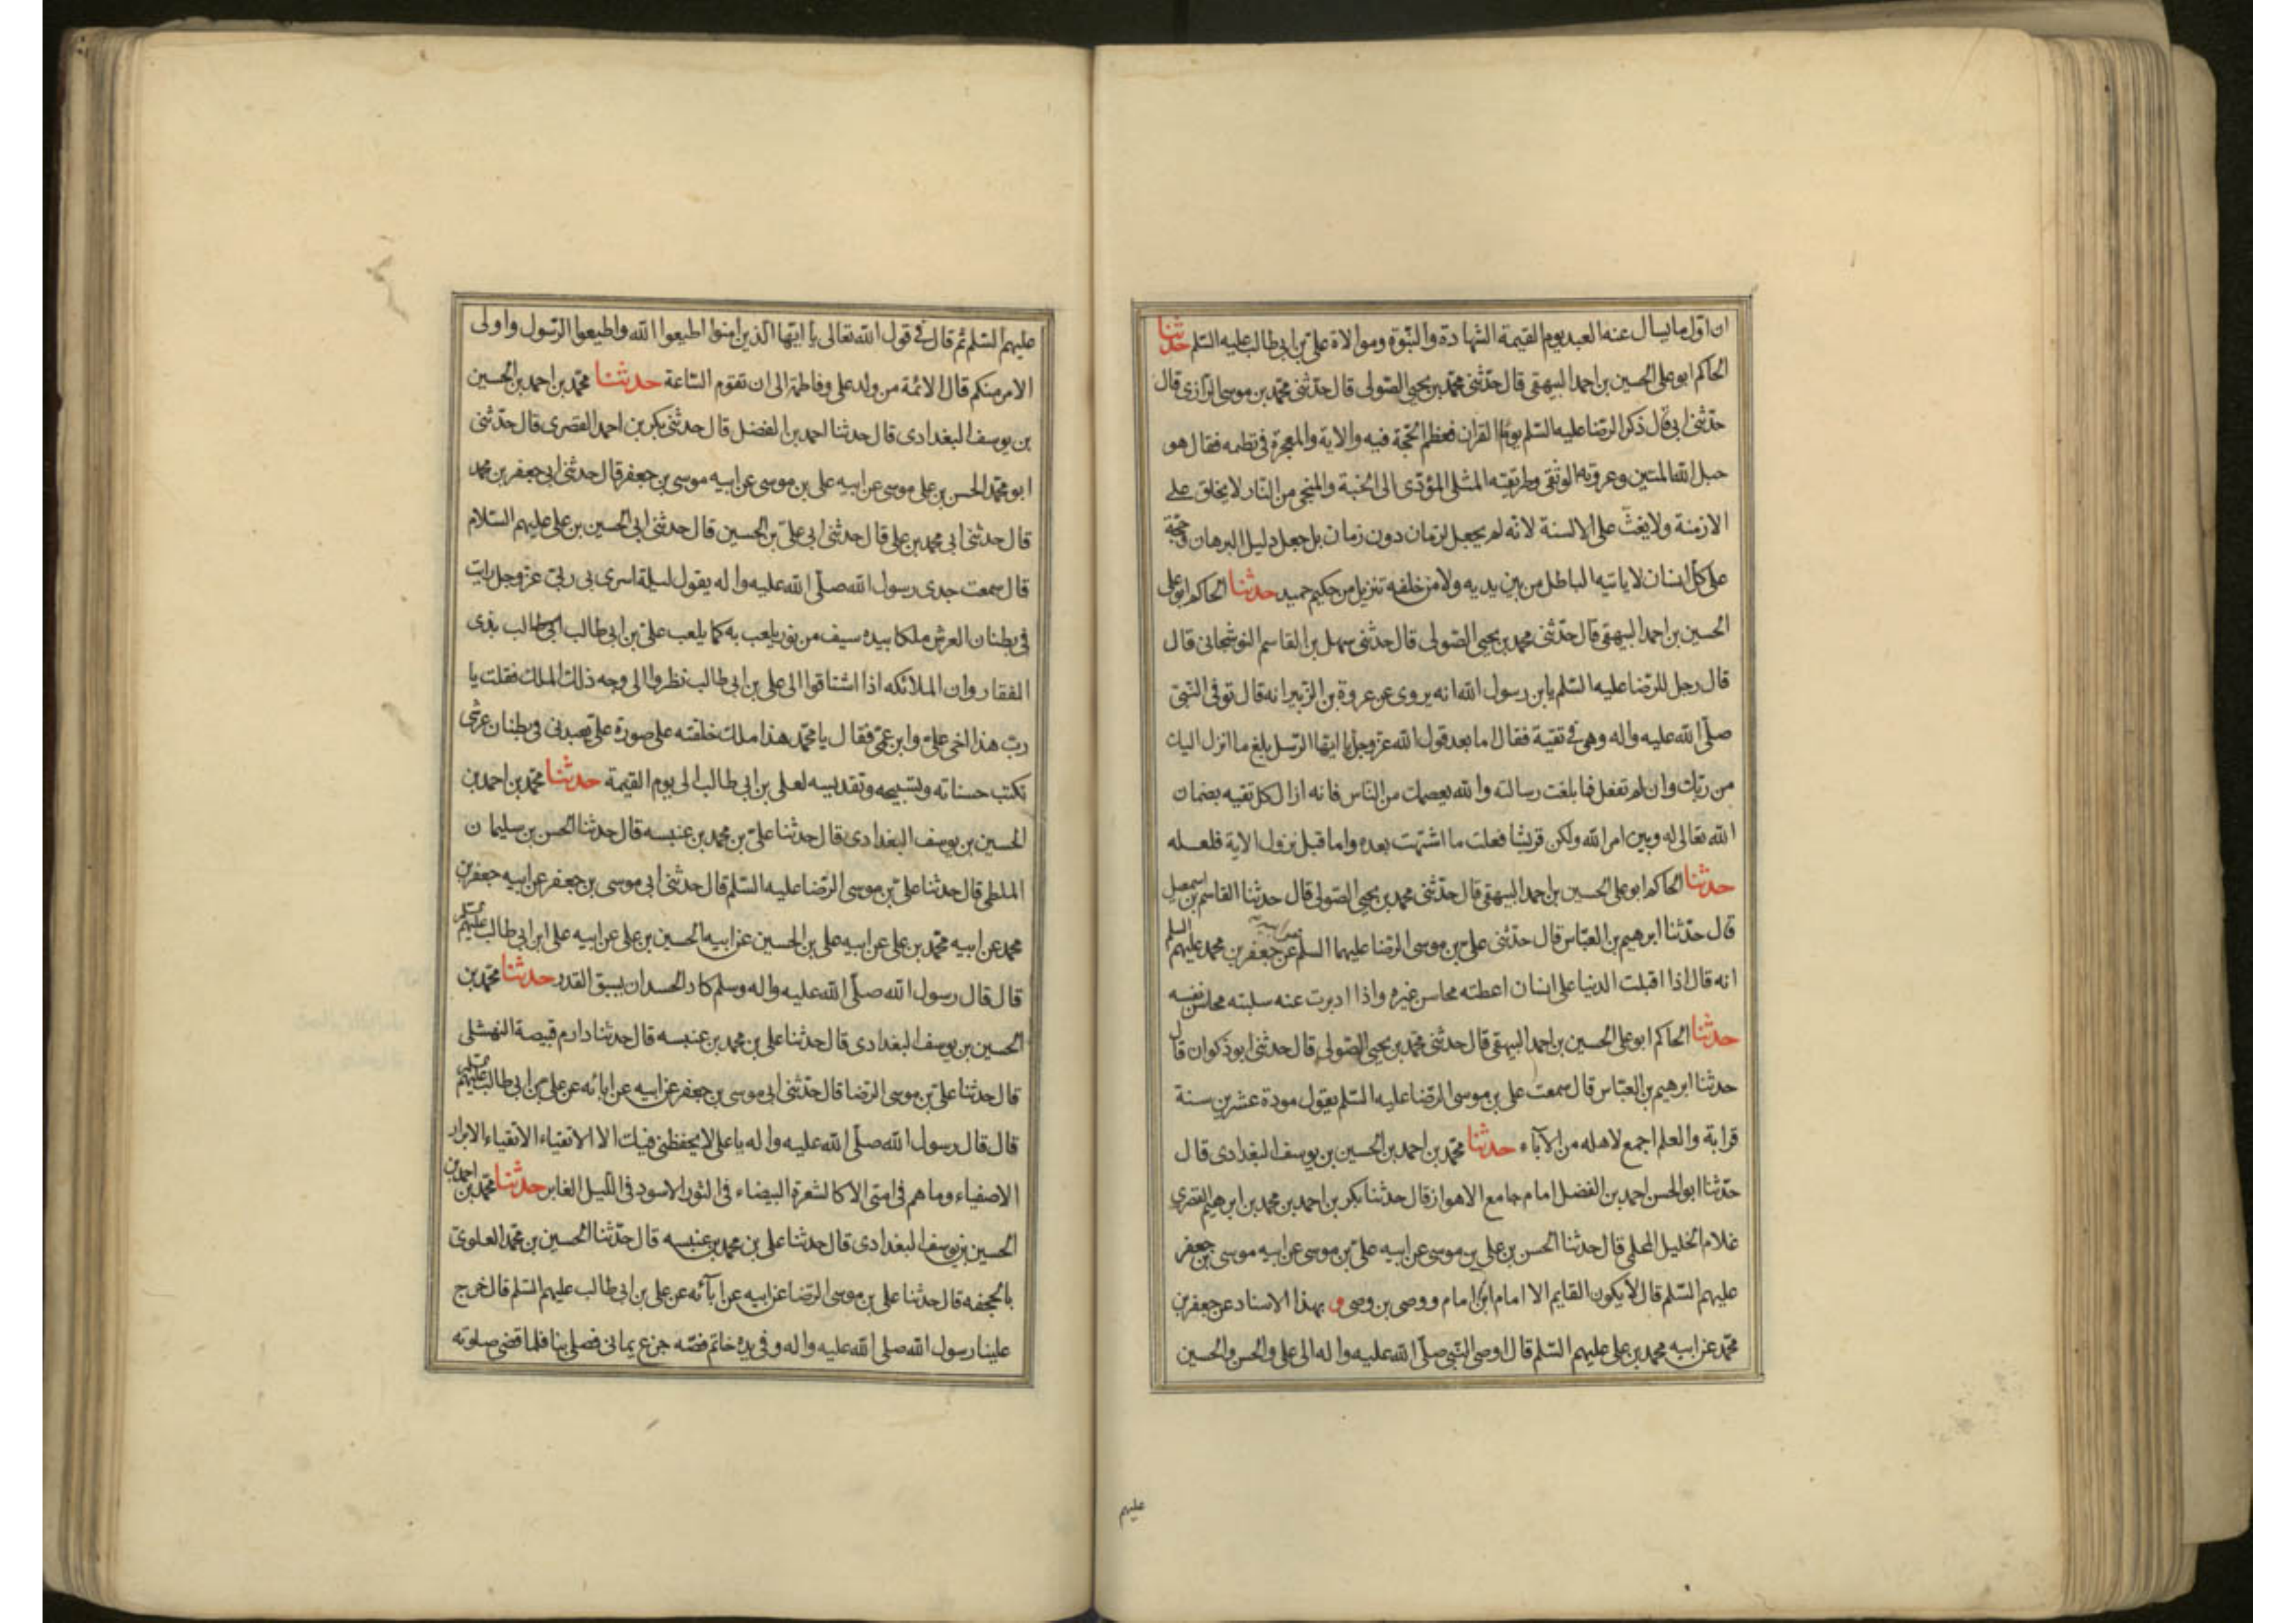 ان اول ما يسال عنه العبد يوم القيمة الشهادة والنبوة وموالاة على بن ابى طالب عليه السلم حدثنا
الحاكم ابو على الحسين بن احمد البيهقى قال حدثنى محمد بن يحيى الصولى قال حدثنى محمد بن موسى الرازى قال
حدثنى ابى قال ذكر الرضا عليه السلم يوما القران فعظم الحجة فيه والاية والمعجزة فى نظمه فقال هو
حبل الله المتين وعروته الوثقى وطريقته المثلى المؤدى الى الجنة والمنجى من النار لا يخلق على
الازمنة ولا يغث على الالسنة لانه لم يجعل لزمان دون زمان بل جعل دليل البرهان وحجة
على كل انسان لا ياتيه الباطل من بين يديه ولا من خلفه تنزيل من حكيم حميد حدثنا الحاكم ابو على
الحسين بن احمد البيهقى قال حدثنى محمد بن يحيى الصولى قال حدثنى سهل بن القاسم النوشجانى قال
قال رجل للرضا عليه السلم يابن رسول الله انه يروى عن عروة بن الزبير انه قال توفى النبى
صلى الله عليه واله وهو فى تقية فقال اما بعد قول الله عز وجل يا ايها الرسل بلغ ما انزل اليك
من ربك وان لم تفعل فما بلغت رسالته والله يعصمك من الناس فانه ازال كل تقيه بضمان
الله تعالى له وبين امر الله ولكن قريشا فعلت ما اشتهت بعده واما قبل نزول الاية فلعله
حدثنا الحاكم ابو على الحسين بن احمد البيهقى قال حدثنى محمد بن يحيى الصولى قال حدثنا القاسم بن اسمعيل
قال حدثنا ابرهيم بن العباس قال حدثنى على بن موسى الرضا عليهما السلم عن جعفر بن محمد عليهم السلم
انه قال اذا اقبلت الدنيا على انسان اعطته محاسن غيره واذا ادبرت عنه سلبته محاسن نفسه
حدثنا الحاكم ابو على الحسين بن احمد البيهقى قال حدثنى محمد بن يحيى الصولى قال حدثنى ابو ذكوان قال
حدثنا ابرهيم بن العباس قال سمعت على بن موسى الرضا عليه السلم يقول مودة عشرين سنة
قرابة والعلم اجمع لاهله من الآباء حدثنا محمد بن احمد بن الحسين بن يوسف البغدادى قال
حدثنا ابو الحسن احمد بن الفضل امام جامع الاهواز قال حدثنا بكر بن احمد بن محمد بن ابرهيم القصرى
غلام الخليل المحلمى قال حدثنا الحسن بن على بن موسى عن ابيه على بن موسى عن ابيه موسى بن جعفر
عليهم السلم قال لا يكون القايم الا امام ابن امام ووصى بن وصى و بهذا الاسناد عن جعفر بن
محمد عن ابيه محمد بن على عليهم السلم قال اوصى النبى صلى الله عليه واله الى على والحسن والحسين
عليهم
عليهم السلم ثم قال فى قول الله تعالى يا ايها الذين امنوا اطيعوا الله واطيعوا الرسول واولى
الامر منكم قال الائمة من ولد على وفاطمة الى ان تقوم الساعة حدثنا محمد بن احمد بن الحسين
بن يوسف البغدادى قال حدثنا احمد بن الفضل قال حدثنى بكر بن احمد القصرى قال حدثنى
ابو محمد الحسن بن على موسى عن ابيه على بن موسى عن ابيه موسى بن جعفر قال حدثنى ابى جعفر بن محمد
قال حدثنى ابى محمد بن على قال حدثنى ابى على بن الحسين قال حدثنى ابى الحسين بن على عليهم السلام
قال سمعت جدى رسول الله صلى الله عليه واله يقول ليلة اسرى بى ربى عز وجل رايت
فى بطنان العرش ملكا بيده سيف من نور يلعب به كما يلعب على بن ابى طالب بذى
الفقار وان الملائكه اذا اشتاقوا الى على بن ابى طالب نظروا الى وجه ذلك الملك فقلت يا
رب هذا اخى على وابن عمى فقال يا محمد هذا ملك خلقته على صورة على يعبدنى فى بطنان عرشى
تكتب حسناته وتسبيحه وتقديسه لعلى بن ابى طالب الى يوم القيمة حدثنا محمد بن احمد بن
الحسين بن يوسف البغدادى قال حدثنا على بن محمد بن عنبسه قال حدثنا الحسن بن سليمان
الملطى قال حدثنا على بن موسى الرضا عليه السلم قال حدثنى ابى موسى بن جعفر عن ابيه جعفر بن
محمد عن ابيه محمد بن على عن ابيه على بن الحسين عن ابيه الحسين بن على عن ابيه على ابن ابى طالب عليهم السلم
قال قال رسول الله صلى الله عليه واله وسلم كاد الحسد ان يسبق القدر حدثنا محمد بن
الحسين بن يوسف البغدادى قال حدثنا على بن محمد بن عنبسه قال حدثنا دارم قبيصة النهشلى
قال حدثنا على بن موسى الرضا قال حدثنى ابى موسى بن جعفر عن ابيه عن ابائه عن على بن ابى طالب عليهم السلم
قال قال رسول الله صلى الله عليه واله يا على لا يحفظنى فيك الا الاتقياء الانقياء الابرار
الاصفياء وما هم فى امتى الا كالشعرة البيضاء فى الثور الاسود فى الليل الغابر حدثنا محمد بن احمد بن
الحسين بن يوسف البغدادى قال حدثنا على بن محمد بن عنبسه قال حدثنا الحسين بن محمد العلوى
بالجحفه قال حدثنا على بن موسى الرضا عن ابيه عن آبائه عن على بن ابى طالب عليهم السلم قال خرج
علينا رسول الله صلى الله عليه واله وفى يده خاتم فضه جزع يمانى فصلى بنا فلما قضى صلوته